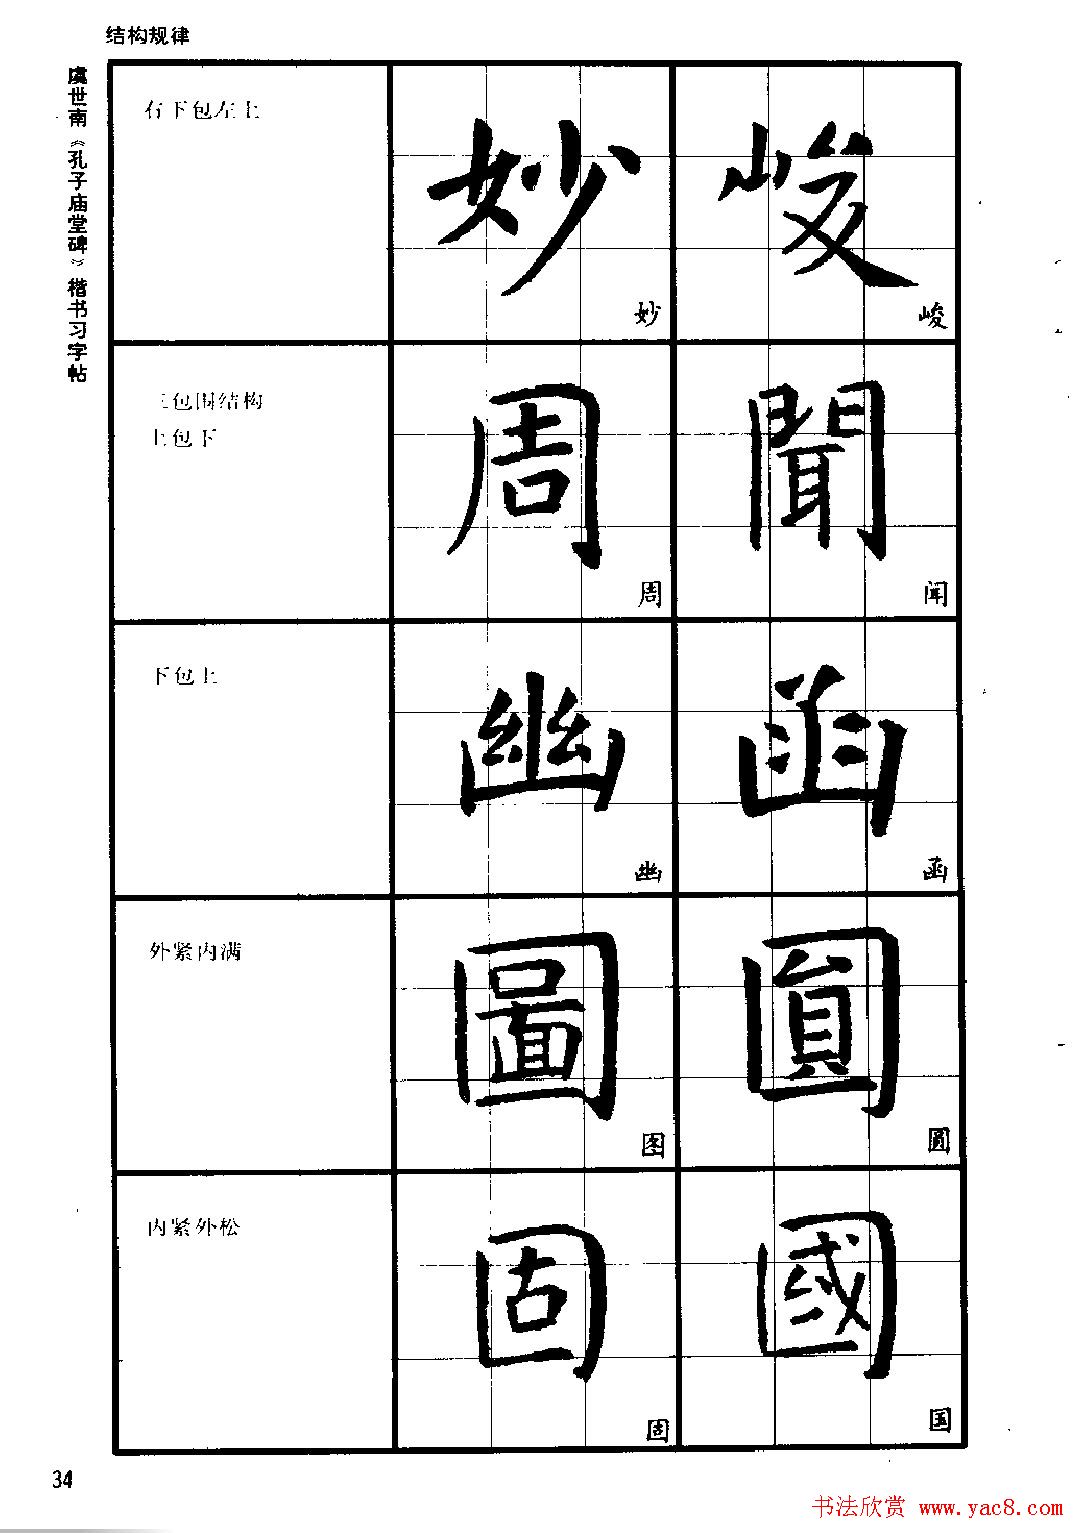 结构规律
虞世南《孔子庙堂碑》楷书习字帖
右下包左上
妙 峻
妙 峻
三包围结构
上包下
周 聞
周 闻
下包上
幽 函
幽 函
外紧内满
圖 圓
图 圆
内紧外松
固 國
固 国
34
书法欣赏 www.yac8.com